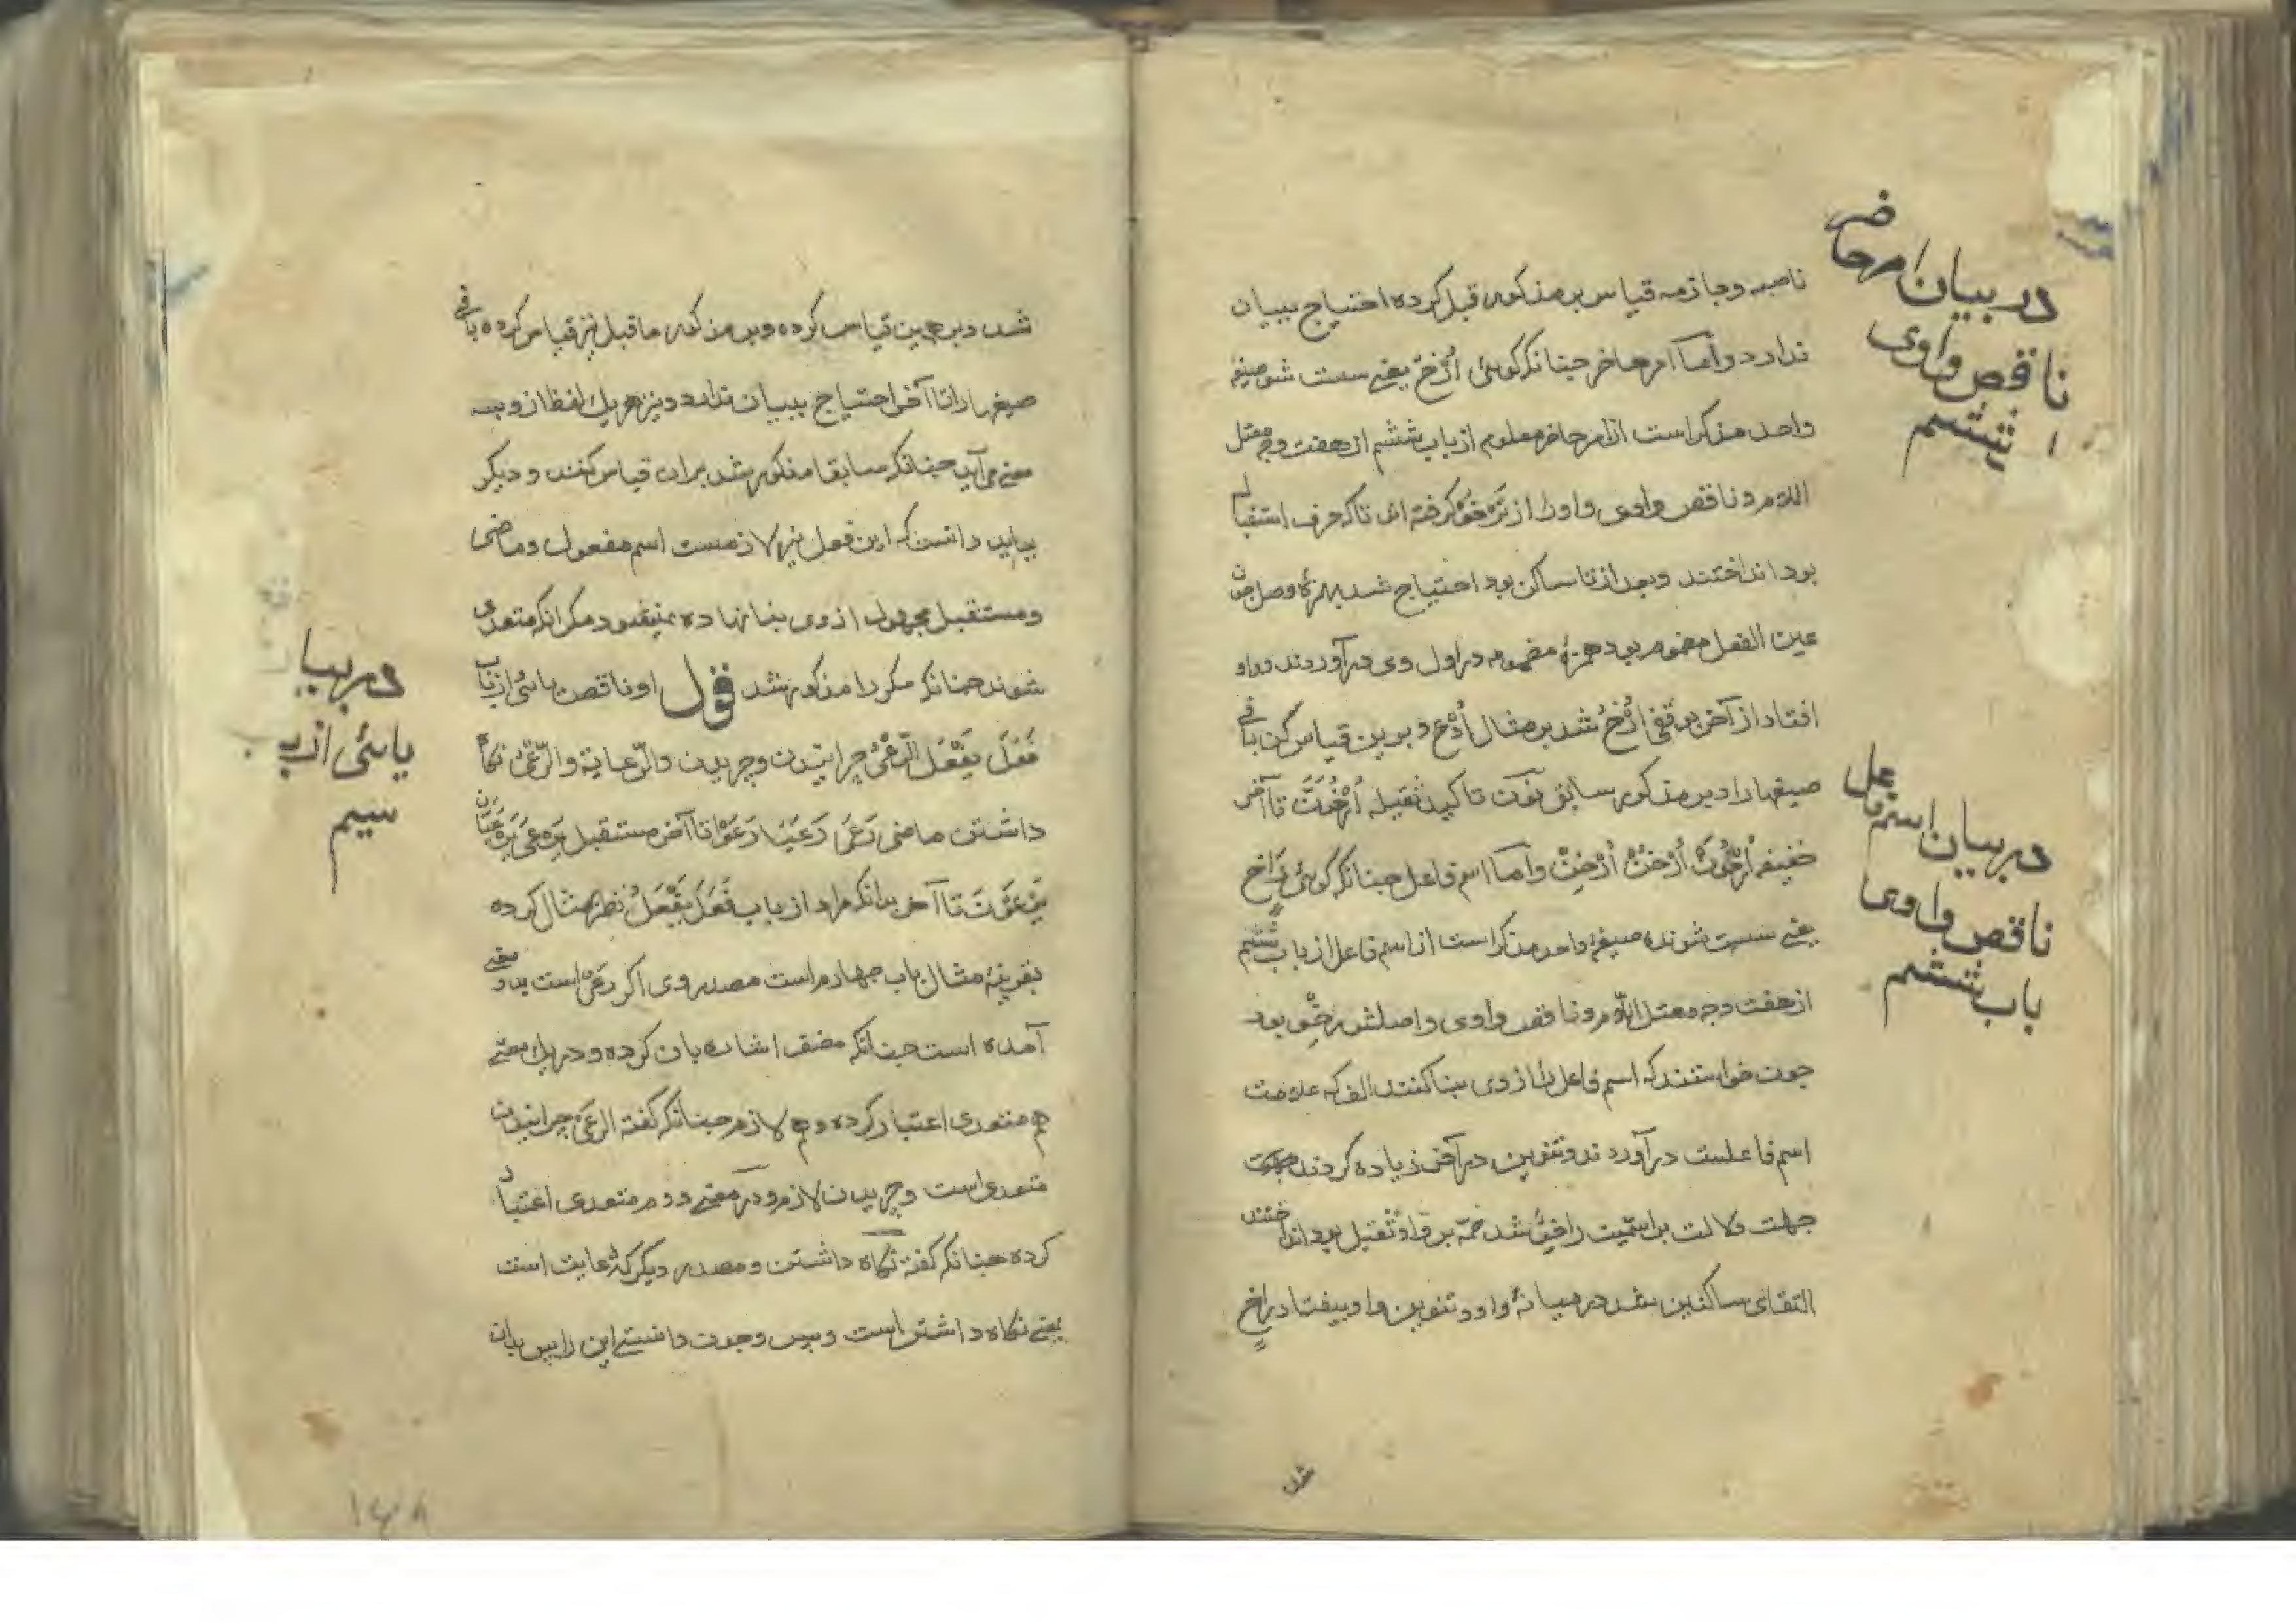 در بیان امر حاضر
ناقص واوی
ششم
ناصبه و جازمه قیاس بر مذکور قبل کرده احتیاج ببیان
ندارد و أما امر حاضر جنانکه کوئی اُرْخُ یعنے سست شو صیغه
واحد مذکر است از امر حاضر معلوم از باب ششم از هفت وجه معتل
اللام و ناقص واوی و اورا از تَرْخُوُ کرفته اند تا که حرف استقبال
بود انداختند و بعد از تا ساکن بود احتیاج شد بهمزۀ وصل جون
عین الفعل مضموم بود همزۀ مضموم در اول وی درآوردند و واو
افتاد از آخر بوقفی اُرْخُ شد بر مثال اُدْعُ و برین قیاس کن باقی
صیغها را و بر مذکور سابق نون تاکید ثقیله اُرْخُوَنَّ تا آخر
خفیفه اُرْخُوَنْ اُرْخُنْ اُرْخِنْ و أما اسم فاعل جنانکه کوئی رَاخٍ
یعنے سست شونده صیغۀ واحد مذکر است از اسم فاعل از باب ششم
از هفت وجه معتل اللام و ناقص واوی و اصلش رخو بود
جون خواستند که اسم فاعل را از وی بنا کنند الف که علامت
اسم فاعلست درآوردند و تنوین در آخر زیاده کردند
جهت دلالت بر اسمیت راخوٌ شد ضمّه بر واو ثقیل بود انداختند
التقای ساکنین شد در میانۀ واو و تنوین واو بیفتاد راخٍ
شد
در بیان اسم فاعل
ناقص واوی
باب ششم
شد و برین قیاس کرده و بر مذکور ما قبل نیز قیاس کرده باقی
صیغها را تا آخر احتیاج ببیان ندارد و نیز هر یك لفظ از وبسه
معنے می آید جنانکه سابقا مذکور شد بران قیاس کنند و دیکر
بباید دانست که این فعل نیز لازمست اسم مفعول و ماضی
و مستقبل مجهول از وی بنا نهاده نمیشود مکر انکه متعدی
شوند جنانکه مکررا مذکور شد قول او ناقص یائی از باب
فَعَلَ یَفْعَلُ الرَّعْیُ چرانیدن و چریدن والرّعایة والرَّعْیُ نکاه
داشتن ماضی رَعَی رَعَیَا رَعَوْا تا آخر مستقبل یَرْعَی یَرْعَیَانِ
یَرْعَوْنَ تا آخر بدانکه مراد از باب فَعَلَ یَفْعَلُ نظر بمثال کرده
بقرینۀ مثال باب جهارم است مصدر وی اکر رَعْی است بدو معنے
آمده است جنانکه مصنف اشاره بان کرده و در یك معنے
هم متعدی اعتبار کرده و هم لازم جنانکه کفته الرعی چرانیدن
متعدی است و چریدن لازم و در معنے دوم متعدی اعتبار
کرده جنانکه کفته نکاه داشتن و مصدر دیکر که رعایت است
یعنے نکاه داشتن است و بس و جون دانستے این را پس بدان
در بیان
یائی از باب
سیم
۱۶۸